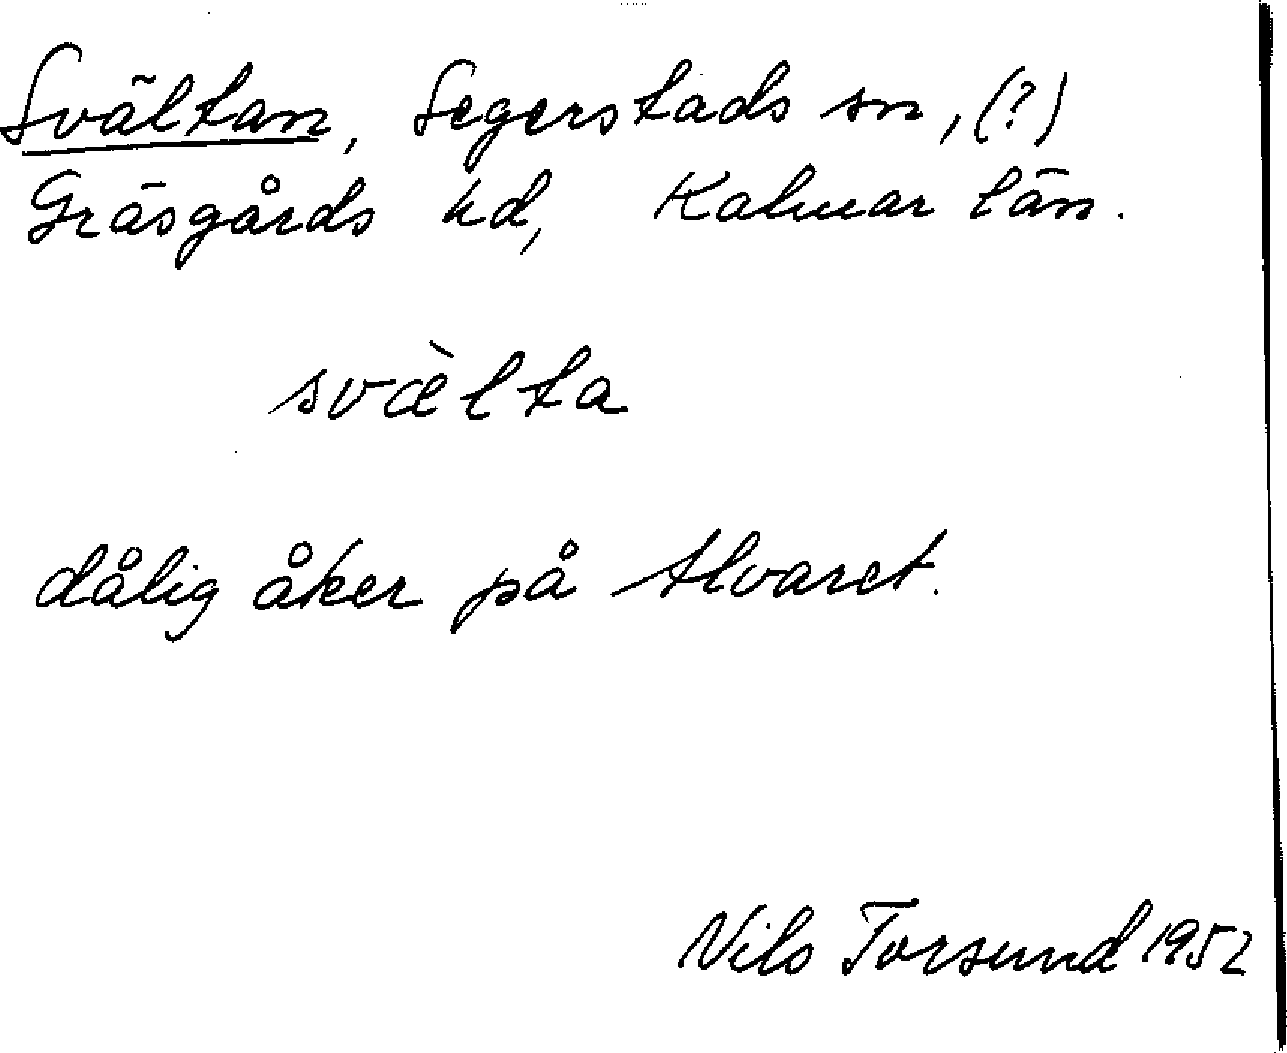 Svältan, Segerstads sn, (?)
Gräsgårds hd, Kalmar län.
svæ̀lta
dålig åker på Alvaret.
Nils Torsund 1952